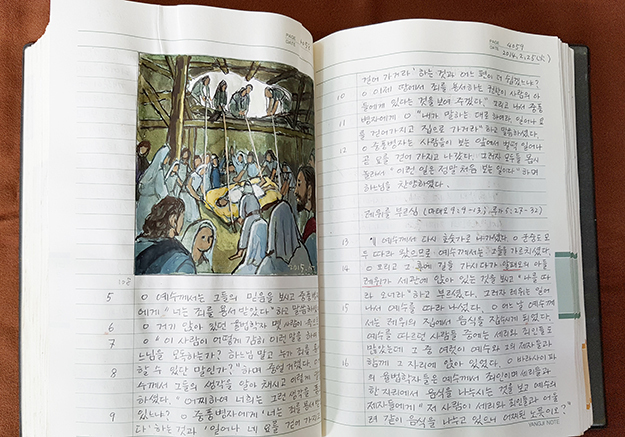 PAGE
DATE
5 ㅇ 예수께서는 그들의 믿음을 보시고 중풍병자
에게 "너는 죄를 용서받았다" 하고 말씀하셨다
6 ㅇ 거기 앉아 있던 율법학자 몇 사람이 속으로
7 ㅇ "이 사람이 어떻게 감히 이런 말을 하여 하
느님을 모독하는가? 하느님 말고 누가 죄를 용서
8 할 수 있단 말인가?" 하며 중얼거렸다 ㅇ 예
수께서 그들의 생각을 알아 채시고 이렇게 말씀
하셨다. "어찌하여 너희는 그런 생각을 품고
9 있느냐? ㅇ 중풍병자에게 '너는 죄를 용서받았
다' 하는 것과 '일어나 네 요를 걷어 가지고
PAGE 4059
DATE 2014. 2. 25 (화)
걸어 가거라' 하는 것과 어느 편이 더 쉽겠느냐?
10 ㅇ 이제 땅에서 죄를 용서하는 권한이 사람의 아
들에게 있다는 것을 보여 주겠다." 그리고 나서 중풍
11 병자에게 ㅇ "내가 말하는 대로 하여라. 일어나 요
를 걷어가지고 집으로 가거라" 하고 말씀하셨다.
12 ㅇ 중풍병자는 사람들이 보는 앞에서 벌떡 일어나
곧 요를 걷어 가지고 나갔다. 그러자 모두들 몹시
놀라서 "이런 일은 정말 처음 보는 일이다" 하며
하느님을 찬양하였다.
레위를 부르심 (마태오 9:9-13; 루가 5:27-32)
13 ¶ 예수께서 다시 호숫가로 나가셨을 때 군중도 모
두 따라 왔으므로 예수께서는 그들을 가르치셨다.
14 ㅇ 그리고 그 후에 길을 가시다가 알패오의 아들
레위가 세관에 앉아 있는 것을 보시고 "나를 따
라 오너라" 하고 부르셨다. 그러자 레위는 일어
15 나서 예수를 따라 나섰다. ㅇ 어느 날 예수께
서는 레위의 집에서 음식을 잡수시게 되었다.
예수를 따르던 사람들 중에는 세리와 죄인들도
많았는데 그 중 여럿이 예수와 그의 제자들과
16 함께 그 자리에 앉아 있었다. ㅇ 바리사이파
의 율법학자들은 예수께서 죄인이며 세리들과
한 자리에서 음식을 나누시는 것을 보고 예수의
제자들에게 "저 사람이 세리와 죄인들과 어울
려 같이 음식을 나누고 있으니 어찌된 노릇이오?"
YANGJI NOTE